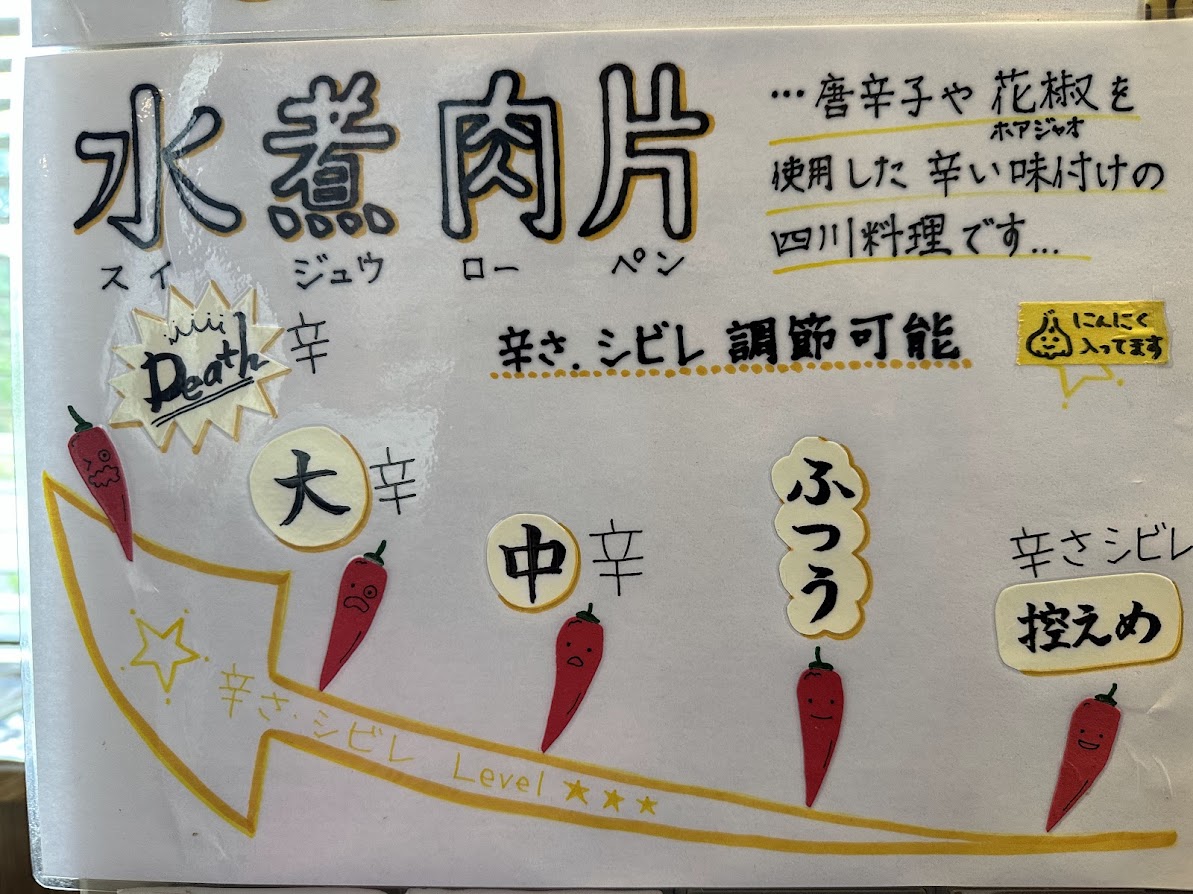 水煮肉片
スイ ジュウ ロー ペン
…唐辛子や花椒を
ホアジャオ
使用した辛い味付けの
四川料理です…
辛さ.シビレ調節可能
にんにく
入ってます
Death辛
大辛
中辛
ふつう
辛さシビレ
控えめ
辛さ・シビレ Level ★★★